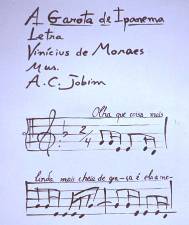 A Garota de Ipanema
Letra
Vinícius de Moraes
Mus.
A. C. Jobim
Olha que coisa mais
2/4
linda mais cheia de gra-ça é ela me-